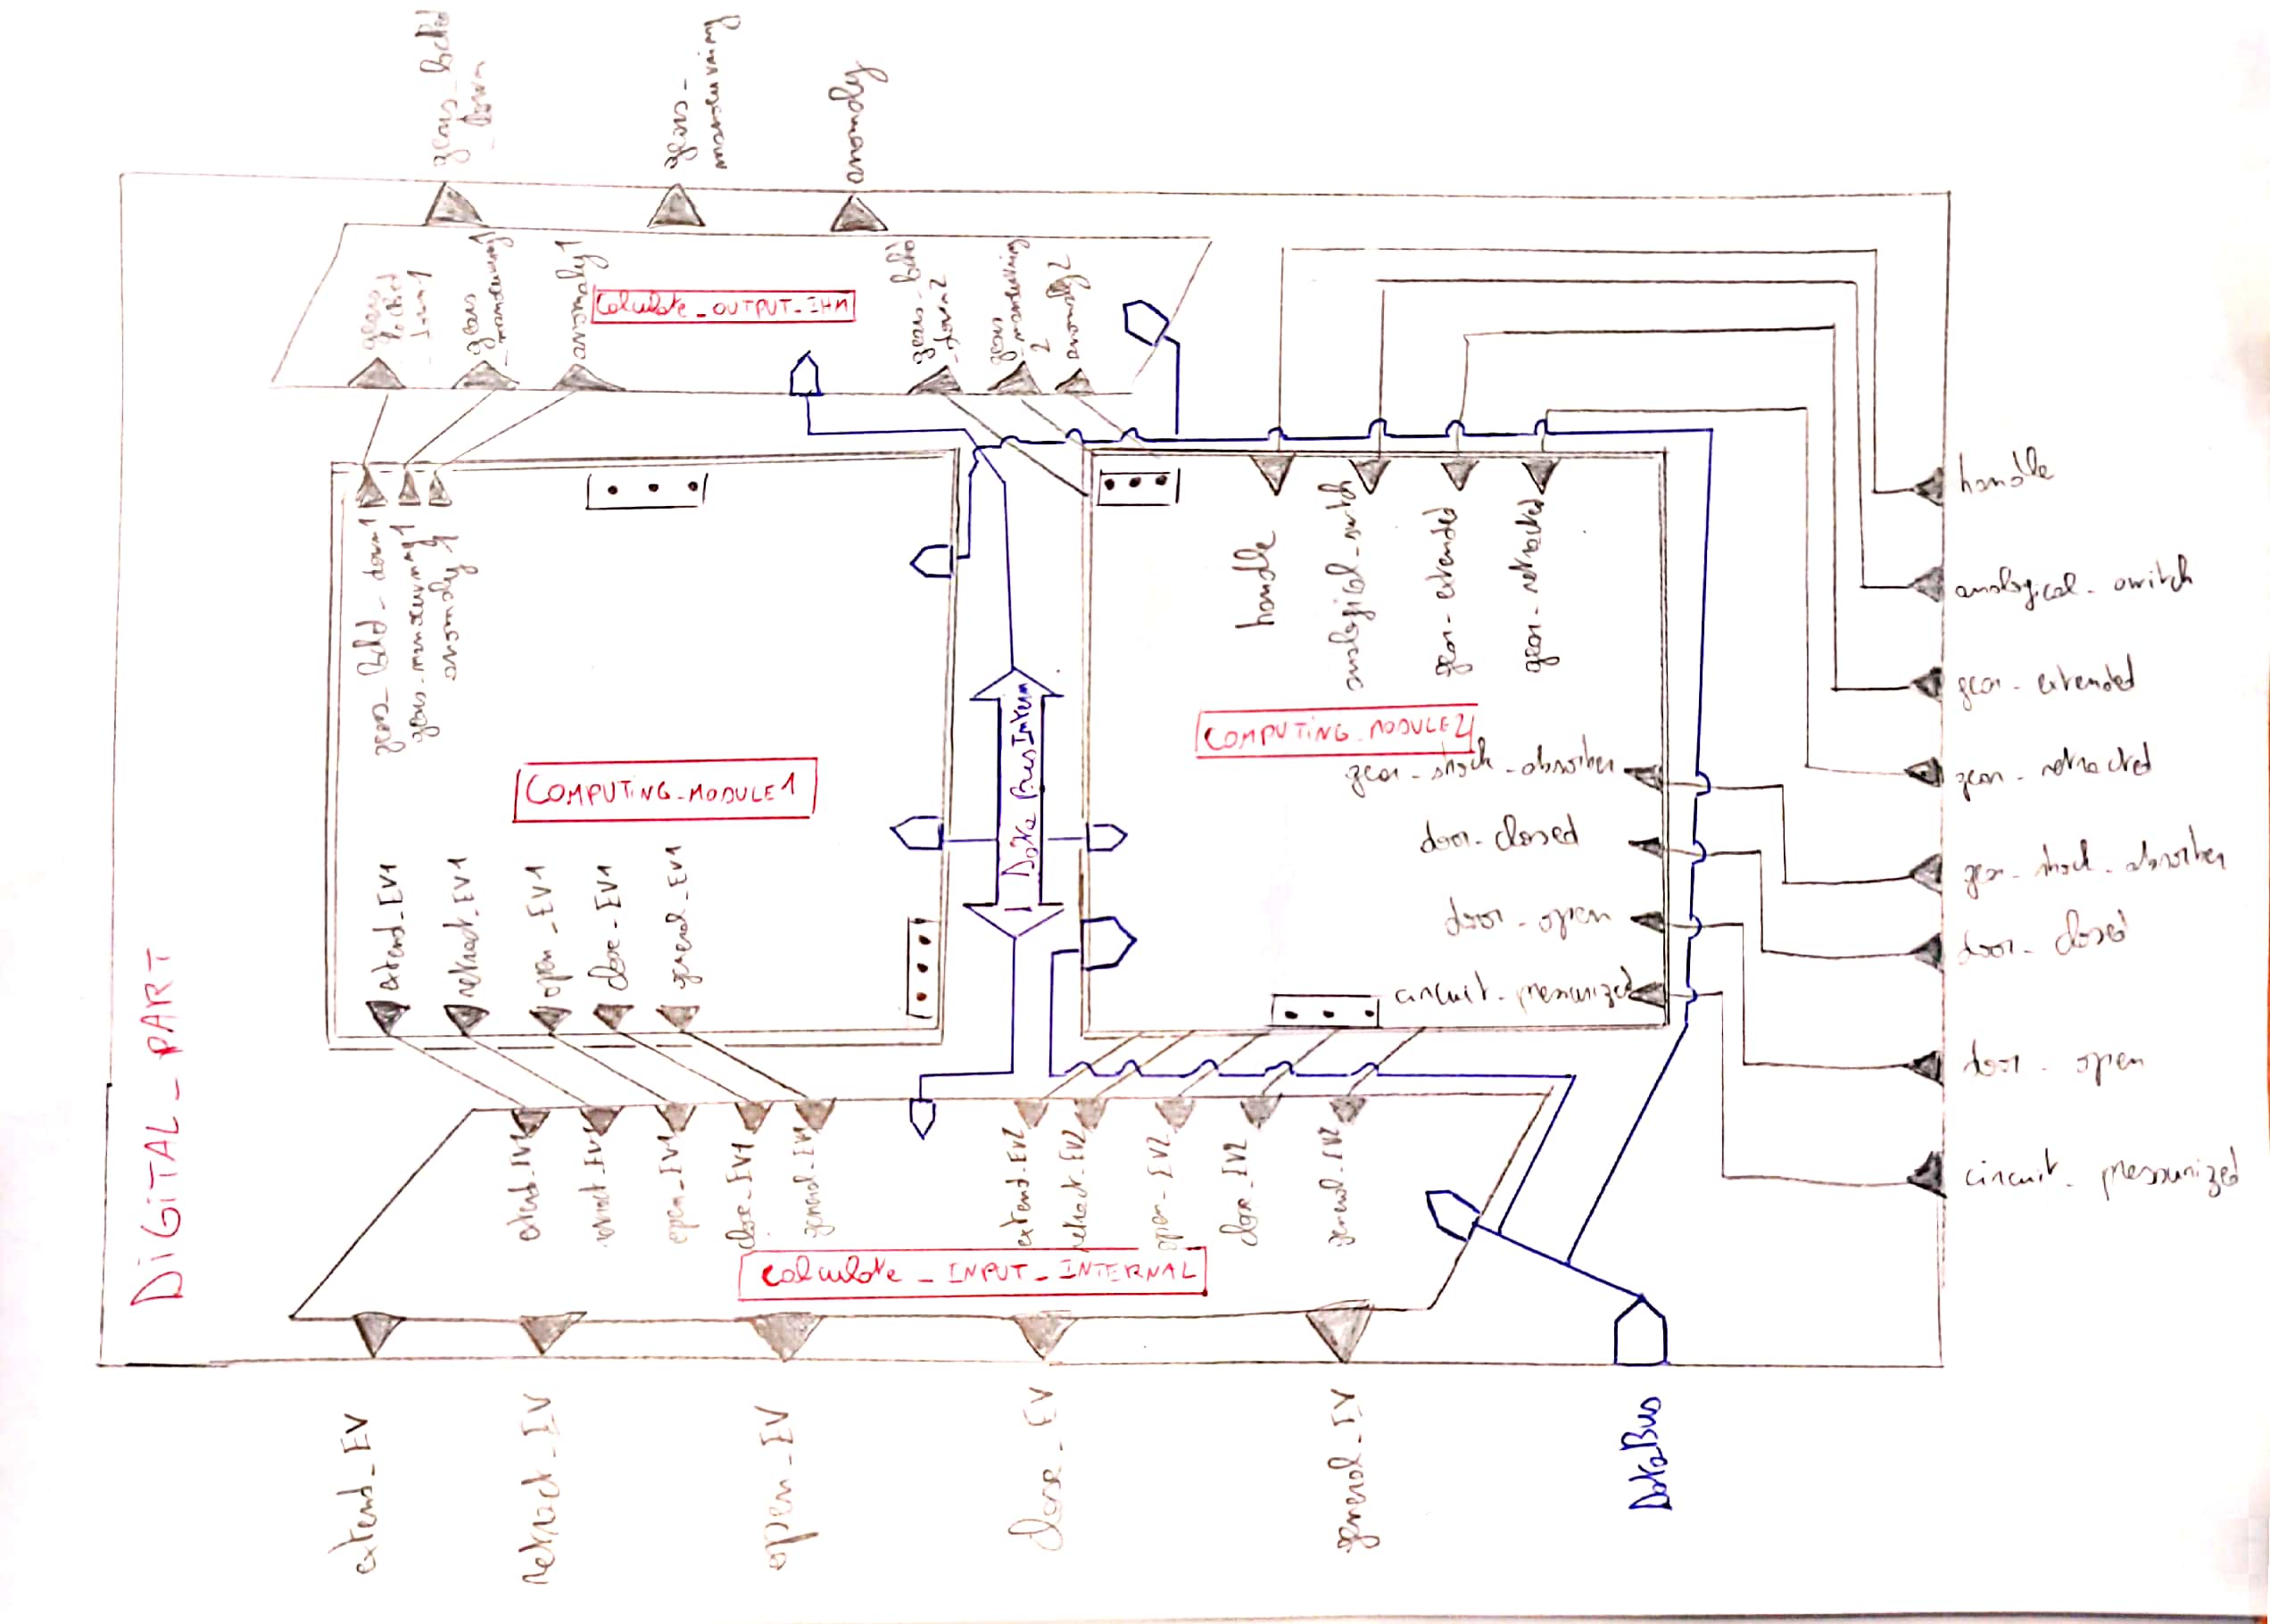 gears_locked
_down
gears_
manoeuvring
anomaly
gears
_locked
_down1
gears
_manoeuvring1
anomaly1
Calculate_OUTPUT_IHM
gears_locked
_down2
gears
_manoeuvring
2
anomaly2
gears_locked_down1
gears_manoeuvring1
anomaly1
COMPUTING_MODULE1
extend_EV1
retract_EV1
open_EV1
close_EV1
general_EV1
Data Bus Intern
handle
analogical_switch
gear_extended
gear_retracted
COMPUTING_MODULE2
gear_shock_absorber
door_closed
door_open
circuit_pressurized
handle
analogical_switch
gear_extended
gear_retracted
gear_shock_absorber
door_closed
door_open
circuit_pressurized
DIGITAL_PART
extend_EV1
retract_EV1
open_EV1
close_EV1
general_EV1
extend_EV2
retract_EV2
open_EV2
close_EV2
general_EV2
Calculate_INPUT_INTERNAL
extend_EV
retract_EV
open_EV
close_EV
general_EV
DataBus